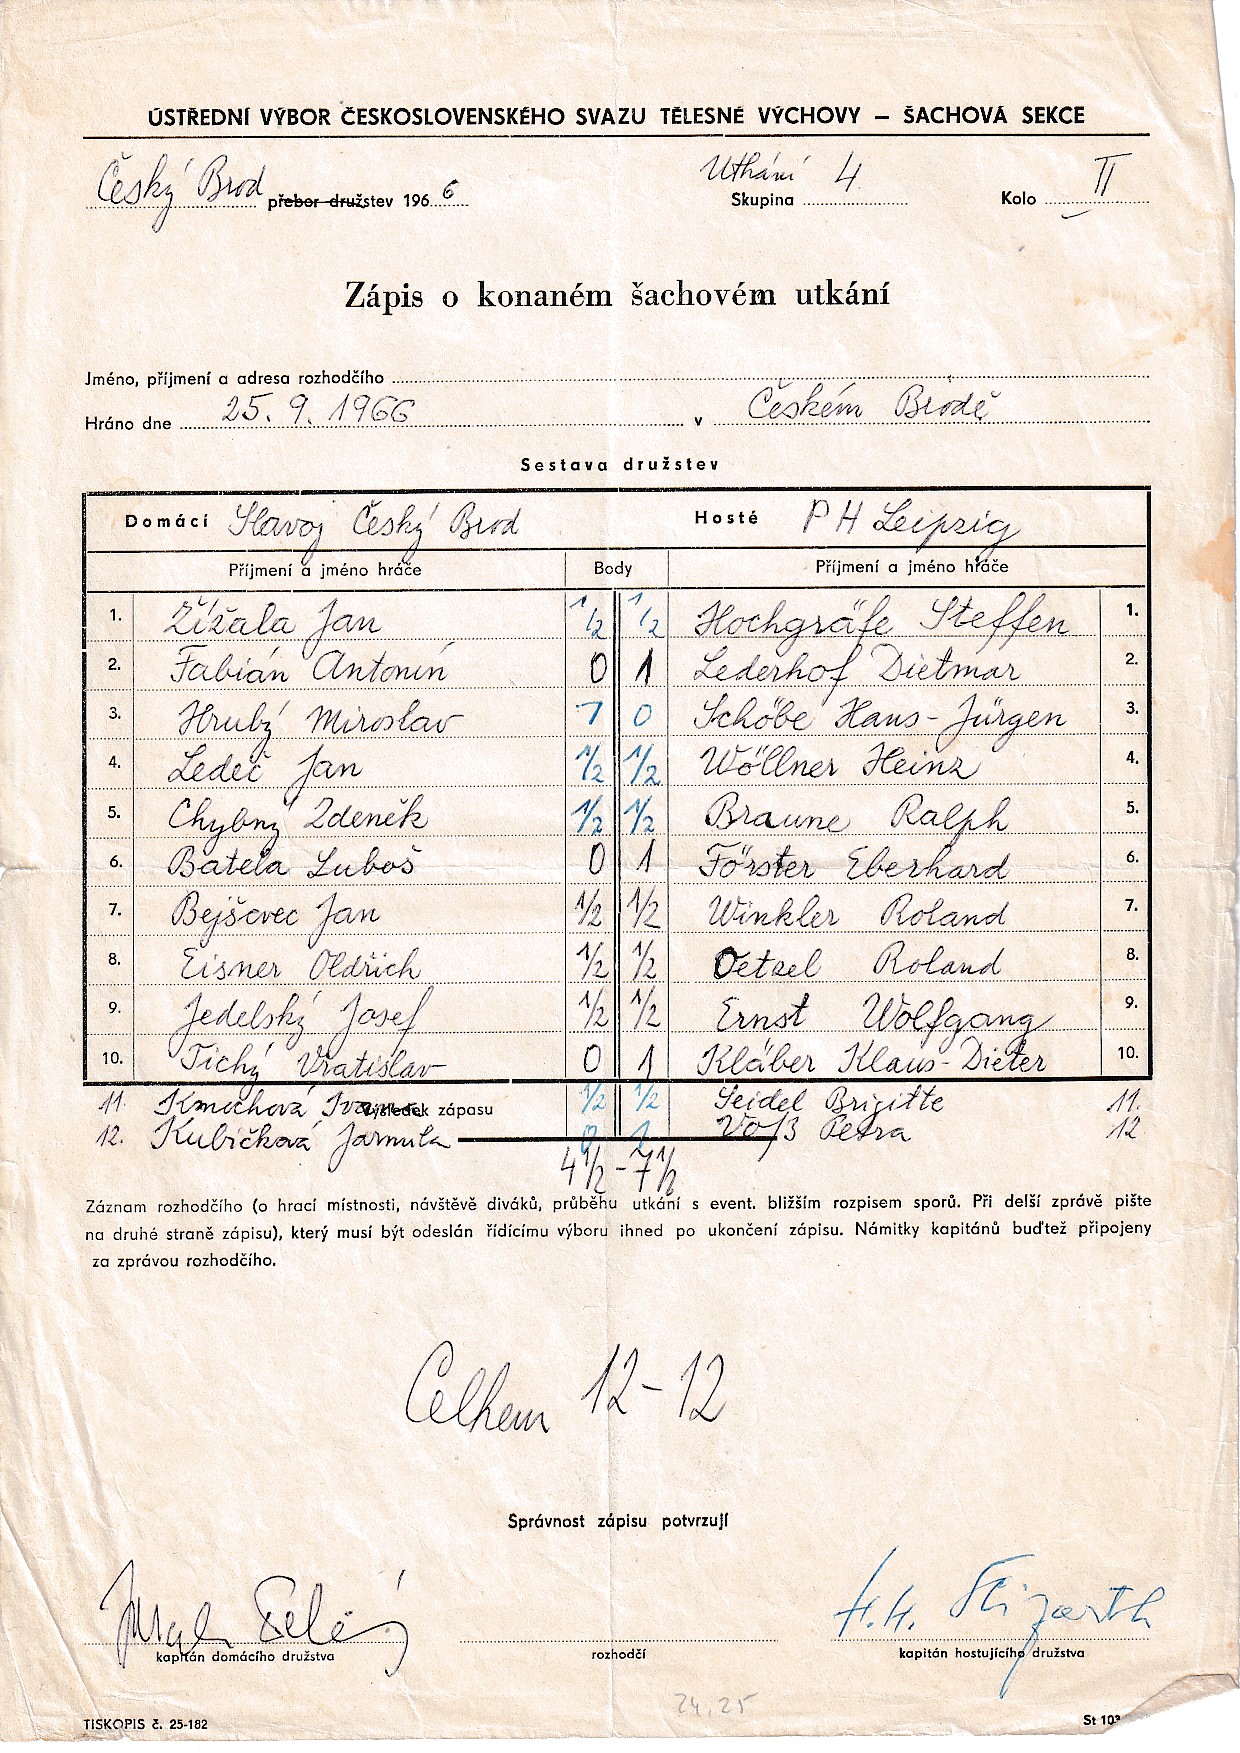 ÚSTŘEDNÍ VÝBOR ČESKOSLOVENSKÉHO SVAZU TĚLESNÉ VÝCHOVY — ŠACHOVÁ SEKCE
Český Brod přebor družstev 196 6 Utkání 4 Skupina Kolo II
Zápis o konaném šachovém utkání
Jméno, příjmení a adresa rozhodčího
Hráno dne 25. 9. 1966 v Českém Brodě
Sestava družstev
Domácí Slavoj Český Brod Hosté PH Leipzig
Příjmení a jméno hráče Body Příjmení a jméno hráče
1. Žížala Jan 1/2 1/2 Hochgräfe Steffen 1.
2. Fabián Antonín 0 1 Lederhof Dietmar 2.
3. Hrubý Miroslav 1 0 Schöbe Hans-Jürgen 3.
4. Ledeč Jan 1/2 1/2 Wöllner Heinz 4.
5. Chybný Zdeněk 1/2 1/2 Braune Ralph 5.
6. Batela Luboš 0 1 Förster Eberhard 6.
7. Bejšovec Jan 1/2 1/2 Winkler Roland 7.
8. Eisner Oldřich 1/2 1/2 Oetzel Roland 8.
9. Jedelský Josef 1/2 1/2 Ernst Wolfgang 9.
10. Tichý Vratislav 0 1 Kläber Klaus-Dieter 10.
11. Kmochová Ivana Výsledek zápasu 1/2 1/2 Seidel Brigitte 11.
12. Kubíčková Jarmila 0 1 Voß Petra 12
4 1/2 - 7 1/2
Záznam rozhodčího (o hrací místnosti, návštěvě diváků, průběhu utkání s event. bližším rozpisem sporů. Při delší zprávě pište
na druhé straně zápisu), který musí být odeslán řídícímu výboru ihned po ukončení zápisu. Námitky kapitánů buďtež připojeny
za zprávou rozhodčího.
Celkem 12-12
Správnost zápisu potvrzují
H. H.
kapitán domácího družstva rozhodčí kapitán hostujícího družstva
24, 25
TISKOPIS č. 25-182 St 103